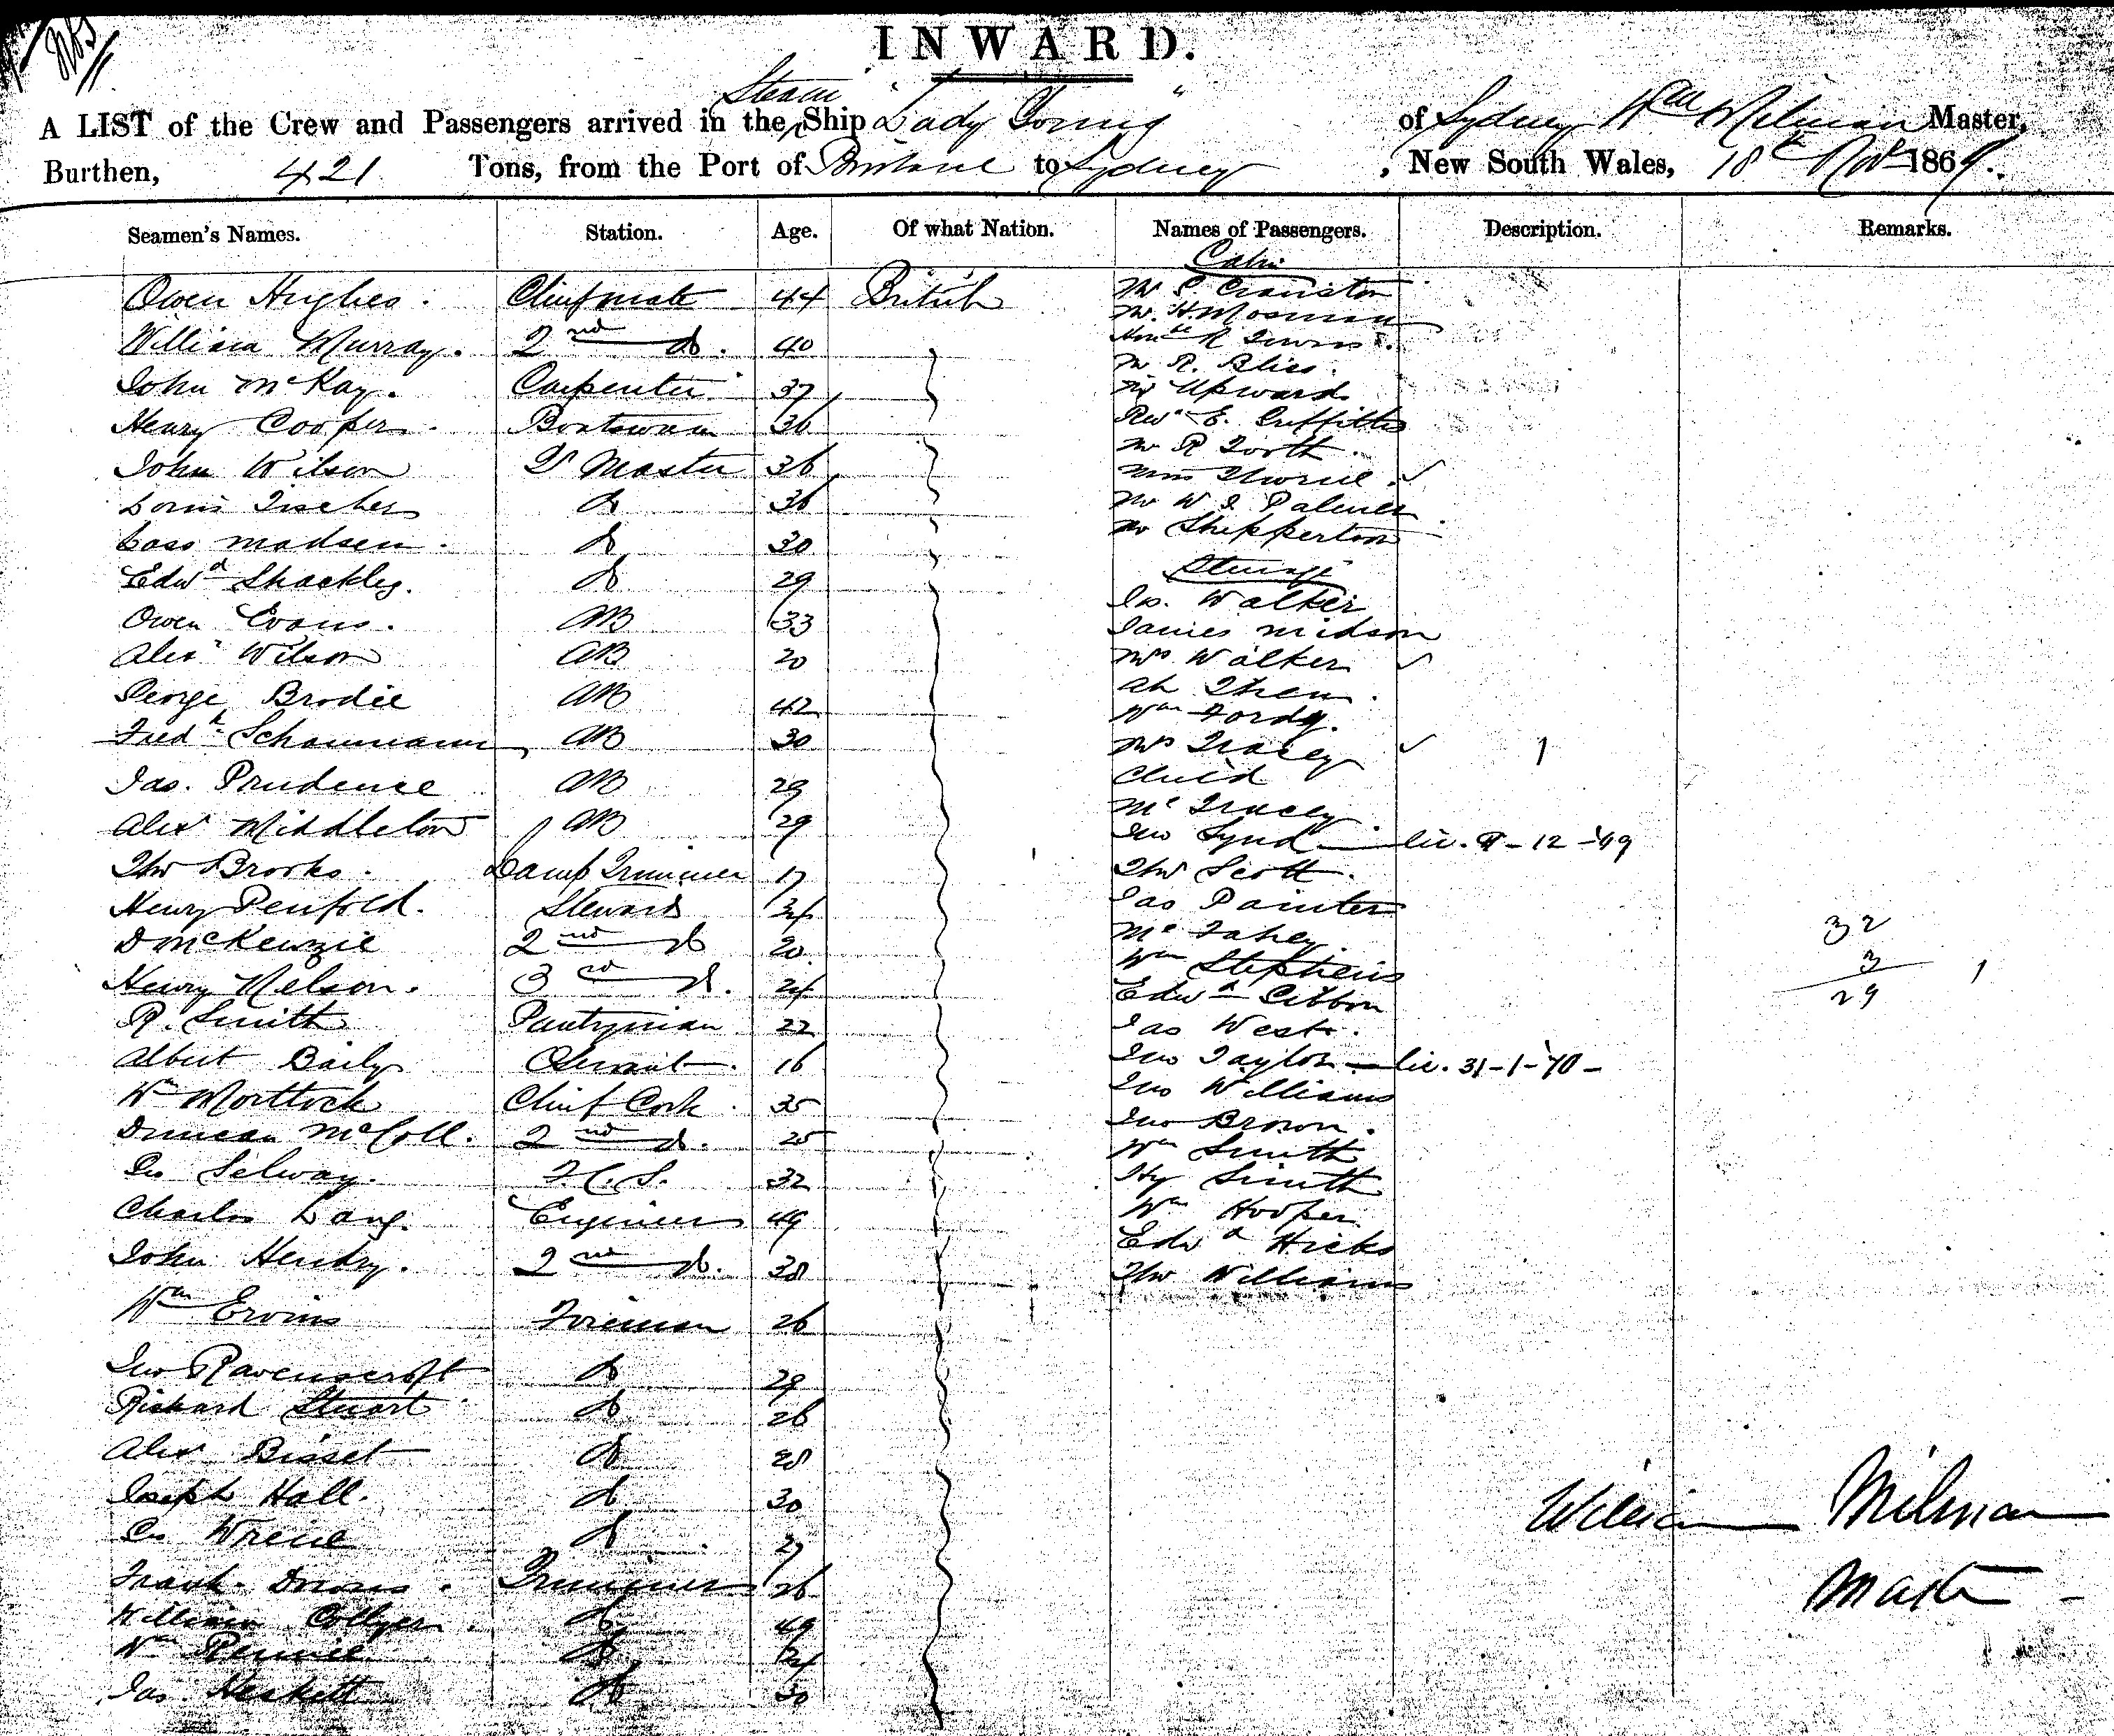 INWARD.
Steam
A LIST of the Crew and Passengers arrived in the Ship "Lady Young" of Sydney Wm Milman Master,
Burthen, 421 Tons, from the Port of Brisbane to Sydney, New South Wales, 18th Nov 1869.
Seamen's Names. Station. Age. Of what Nation. Names of Passengers. Description. Remarks.
Cabin
Owen Hughes. Chief mate 44 British
Mr Cranston
Mr. H. Mosman
William Murray. 2nd do. 40
Mr R. Bliss.
John McKay. Carpenter 37
Mr Upward
Henry Cooper. Boatswain 36
Revd E. Griffiths
Mr R Tooth.
John Wilson Qr Master 36
Louis Tischer do 36
Mr W J Palmer
Mr Shepperton
Lass Madsen. do 30
Steerage
Edwd Shackley. do 29
Js. Walker
Owen Evans. AB 33
James Midson
Alexr Wilson AB 20
Mrs Walker ✓
George Brodie AB 42
Ah
Wm Fordy.
Fredk Schaumann AB 30
Mrs Tracey ✓ 1
Child
Jas. Prudence AB 29
Mr Tracey
Alexr Middleton AB 29
Jno Lynd lic. 9-12-'69
Thos Brooks. Lamp Trimmer 17
Thos Scott.
Henry Penfold. Steward 34
Jas Painter
32
D McKenzie 2nd do 20
Mr Fahey.
Wm Stephens
3 1
Henry Nelson. 3rd do. 24
Edwd Gibbon
29
R. Smith Pantryman 22
Jas West.
Albert Baily Servant. 16
Jno Taylor lic. 31-1-'70-
Wm Mortlock Chief Cook 35
Jno Williams
Jno Brown.
Duncan McColl. 2nd do. 25
Wm Smith
Geo Selway. F.C.S. 32
Hy Smith
Charles Lang. Engineer 49
Wm Hooper
Edwd Hicks
John Hendry. 2nd do. 38
Thos Williams
Wm Ervins Fireman 26
Jno Ravenscroft do 29
Richard Stuart do 26
Alexr Bisset do 28
Joseph Hall. do 30
William Milman
Geo do 27
Frank Trimmer 26
Master
William Collyer. do 49
Wm Rennie do 24
Jas Heskett do 30